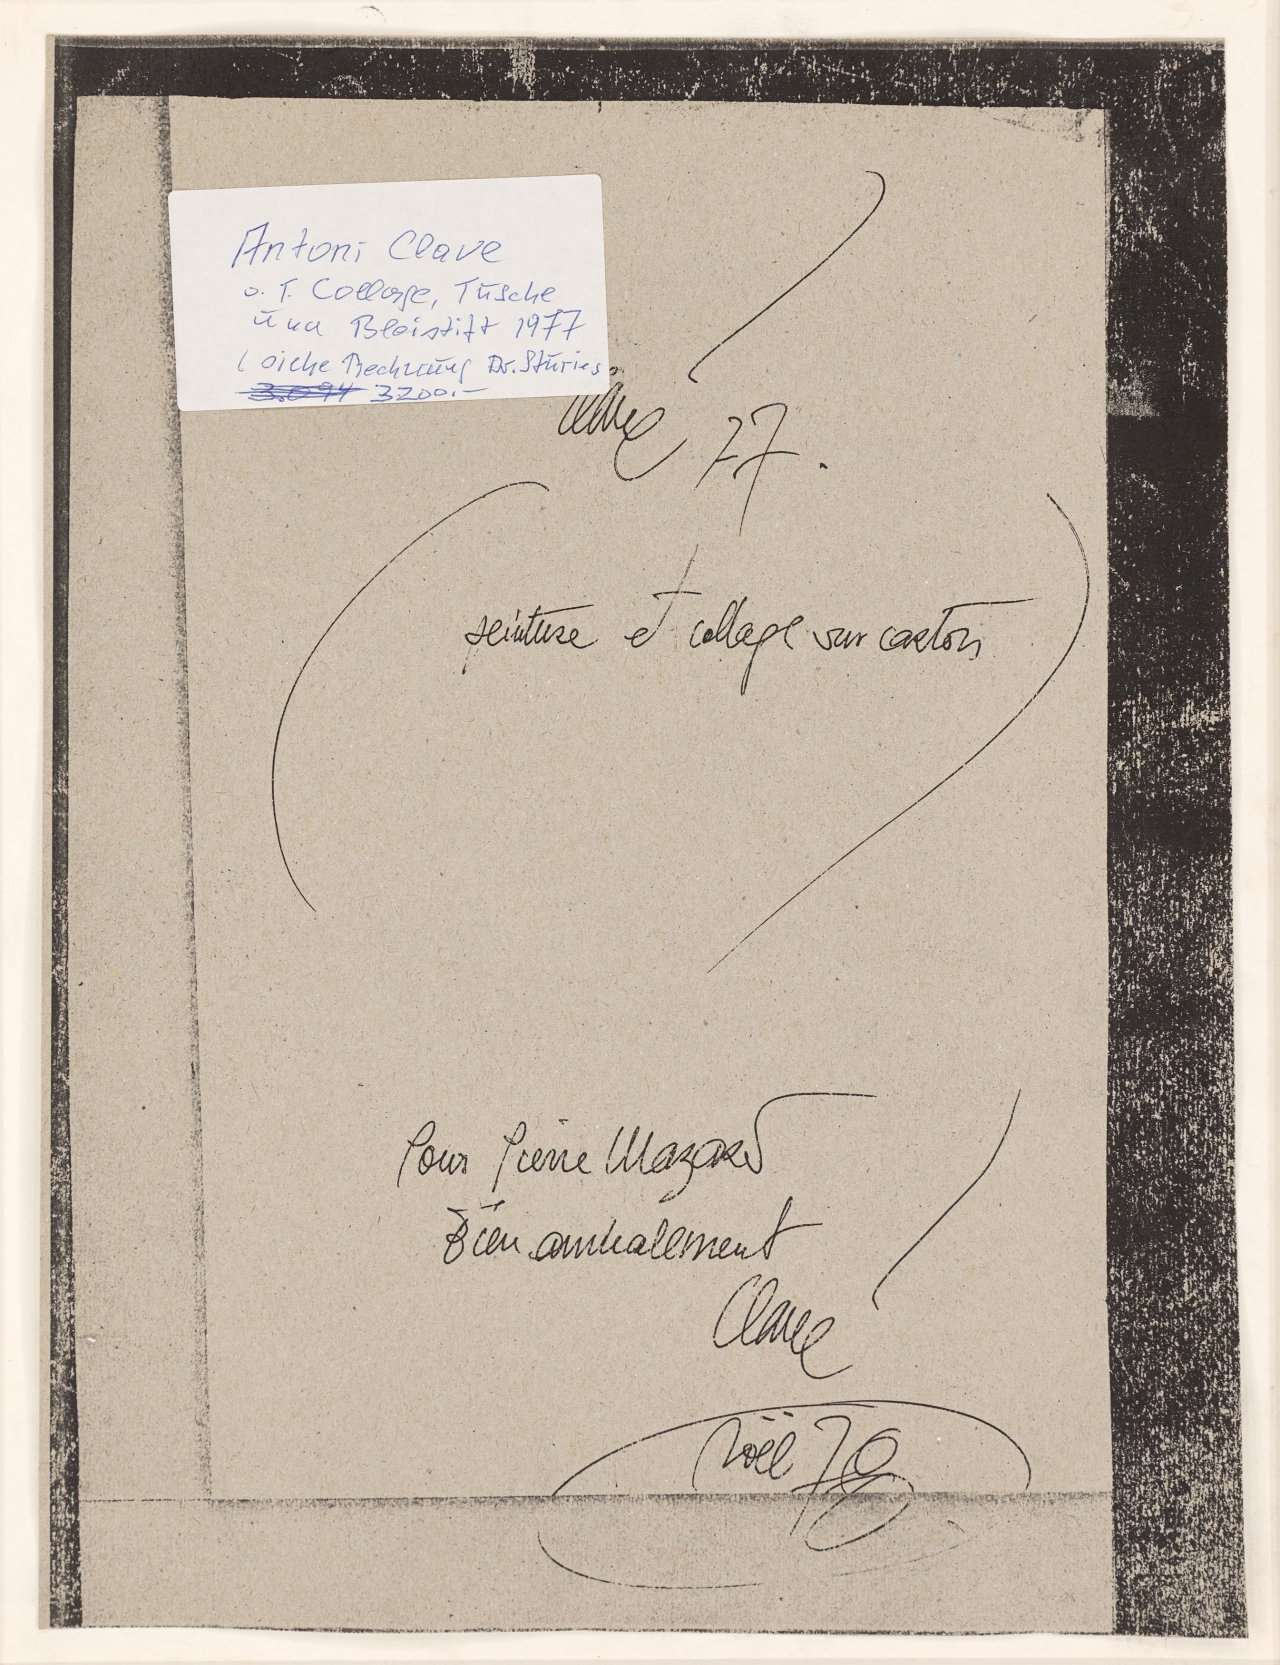 Antoni Clave
o. T. Collage, Tusche
und Bleistift 1977
( siehe Rechnung Dr. Sturies
3.094 3200.-
Clavé 77.
peinture et collage sur carton
Pour Pierre Mazars
Bien amicalement
Clavé
Noël 78